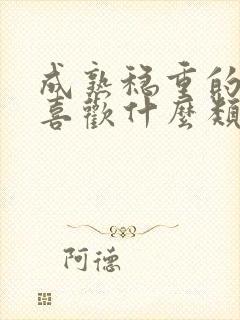 成熟穩重的
喜歡什麼類
阿德